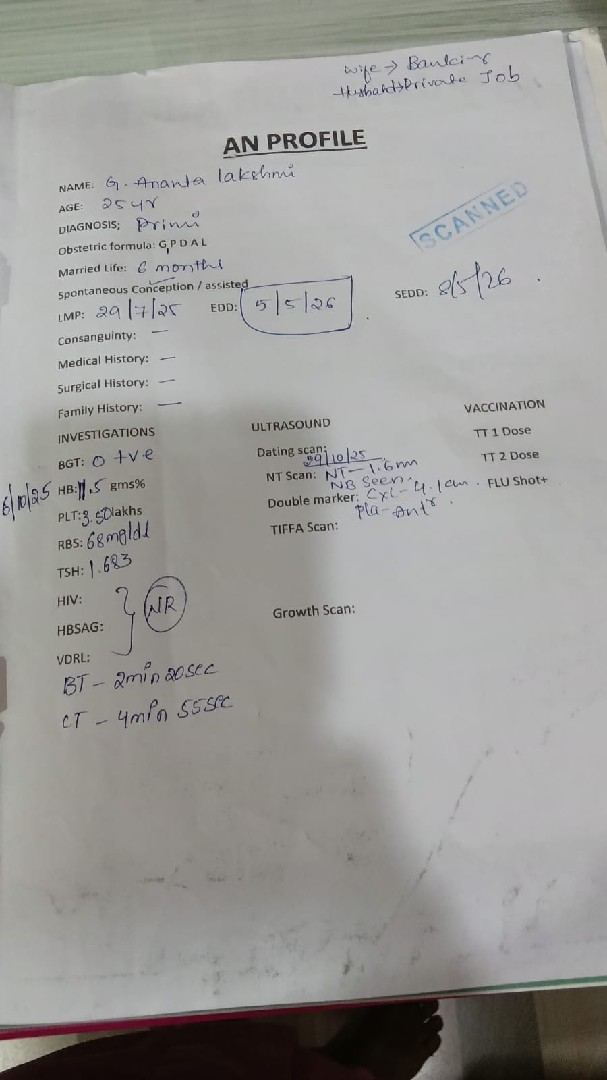 wife → Banking
Husband → Private Job
AN PROFILE
NAME: G. Ananta lakshmi
AGE: 25 yr
DIAGNOSIS; Primi
SCANNED
Obstetric formula: G P D A L
Married Life: 6 months
Spontaneous Conception / assisted
LMP: 29/7/25 EDD: 5/5/26 SEDD: 8/5/26
Consanguinty: —
Medical History: —
Surgical History: —
Family History: —
INVESTIGATIONS ULTRASOUND VACCINATION
BGT: O +ve Dating scan: TT 1 Dose
29/10/25
6/10/25 HB: 11.5 gms% NT Scan: NT - 1.6mm TT 2 Dose
NB Seen.
PLT: 3.50 lakhs Double marker: CxL - 4.1cm. FLU Shot+
Pla - Antr.
RBS: 68mg/dl TIFFA Scan:
TSH: 1.683
HIV: NR
HBSAG: Growth Scan:
VDRL:
BT - 2min 20sec
CT - 4min 55sec